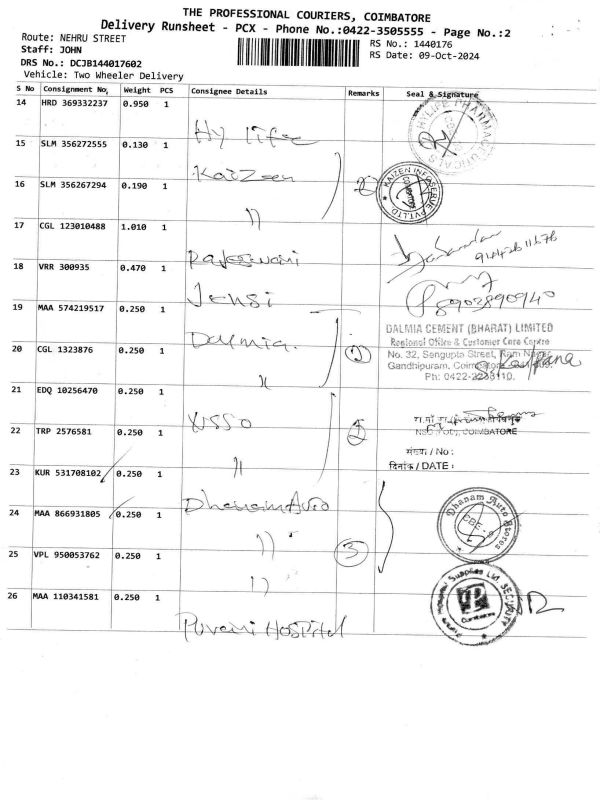 THE PROFESSIONAL COURIERS, COIMBATORE
Delivery Runsheet - PCX - Phone No.:0422-3505555 - Page No.:2
Route: NEHRU STREET
RS No.: 1440176
Staff: JOHN
RS Date: 09-Oct-2024
DRS No.: DCJB144017602
Vehicle: Two Wheeler Delivery
S No Consignment No, Weight PCS Consignee Details Remarks Seal & Signature
14 HRD 369332237 0.950 1 Hy life
15 SLM 356272555 0.130 1 Kaizeen
16 SLM 356267294 0.190 1 "
2
KAIZEN INFOSERVE PVT.LTD
17 CGL 123010488 1.010 1 Rajeswani
18 VRR 300935 0.470 1 Jensi
8903890940
19 MAA 574219517 0.250 1 Dalmia.
20 CGL 1323876 0.250 1 "
2
DALMIA CEMENT (BHARAT) LIMITED
Regional Office & Customer Care Centre
No. 32, Sengupta Street, Ram Nagar
Gandhipuram, Coimbatore
Ph: 0422-2233110.
Kalpana
21 EDQ 10256470 0.250 1
22 TRP 2576581 0.250 1 "
2
COIMBATORE
संख्या / No :
दिनांक / DATE :
23 KUR 531708102 0.250 1 Dhanam Auto
24 MAA 866931805 0.250 1 "
25 VPL 950053762 0.250 1 "
3
Dhanam Auto Stores
CBE
26 MAA 110341581 0.250 1 Purani Hospital
Hospital Supplies Ltd SECURITY
Coimbatore